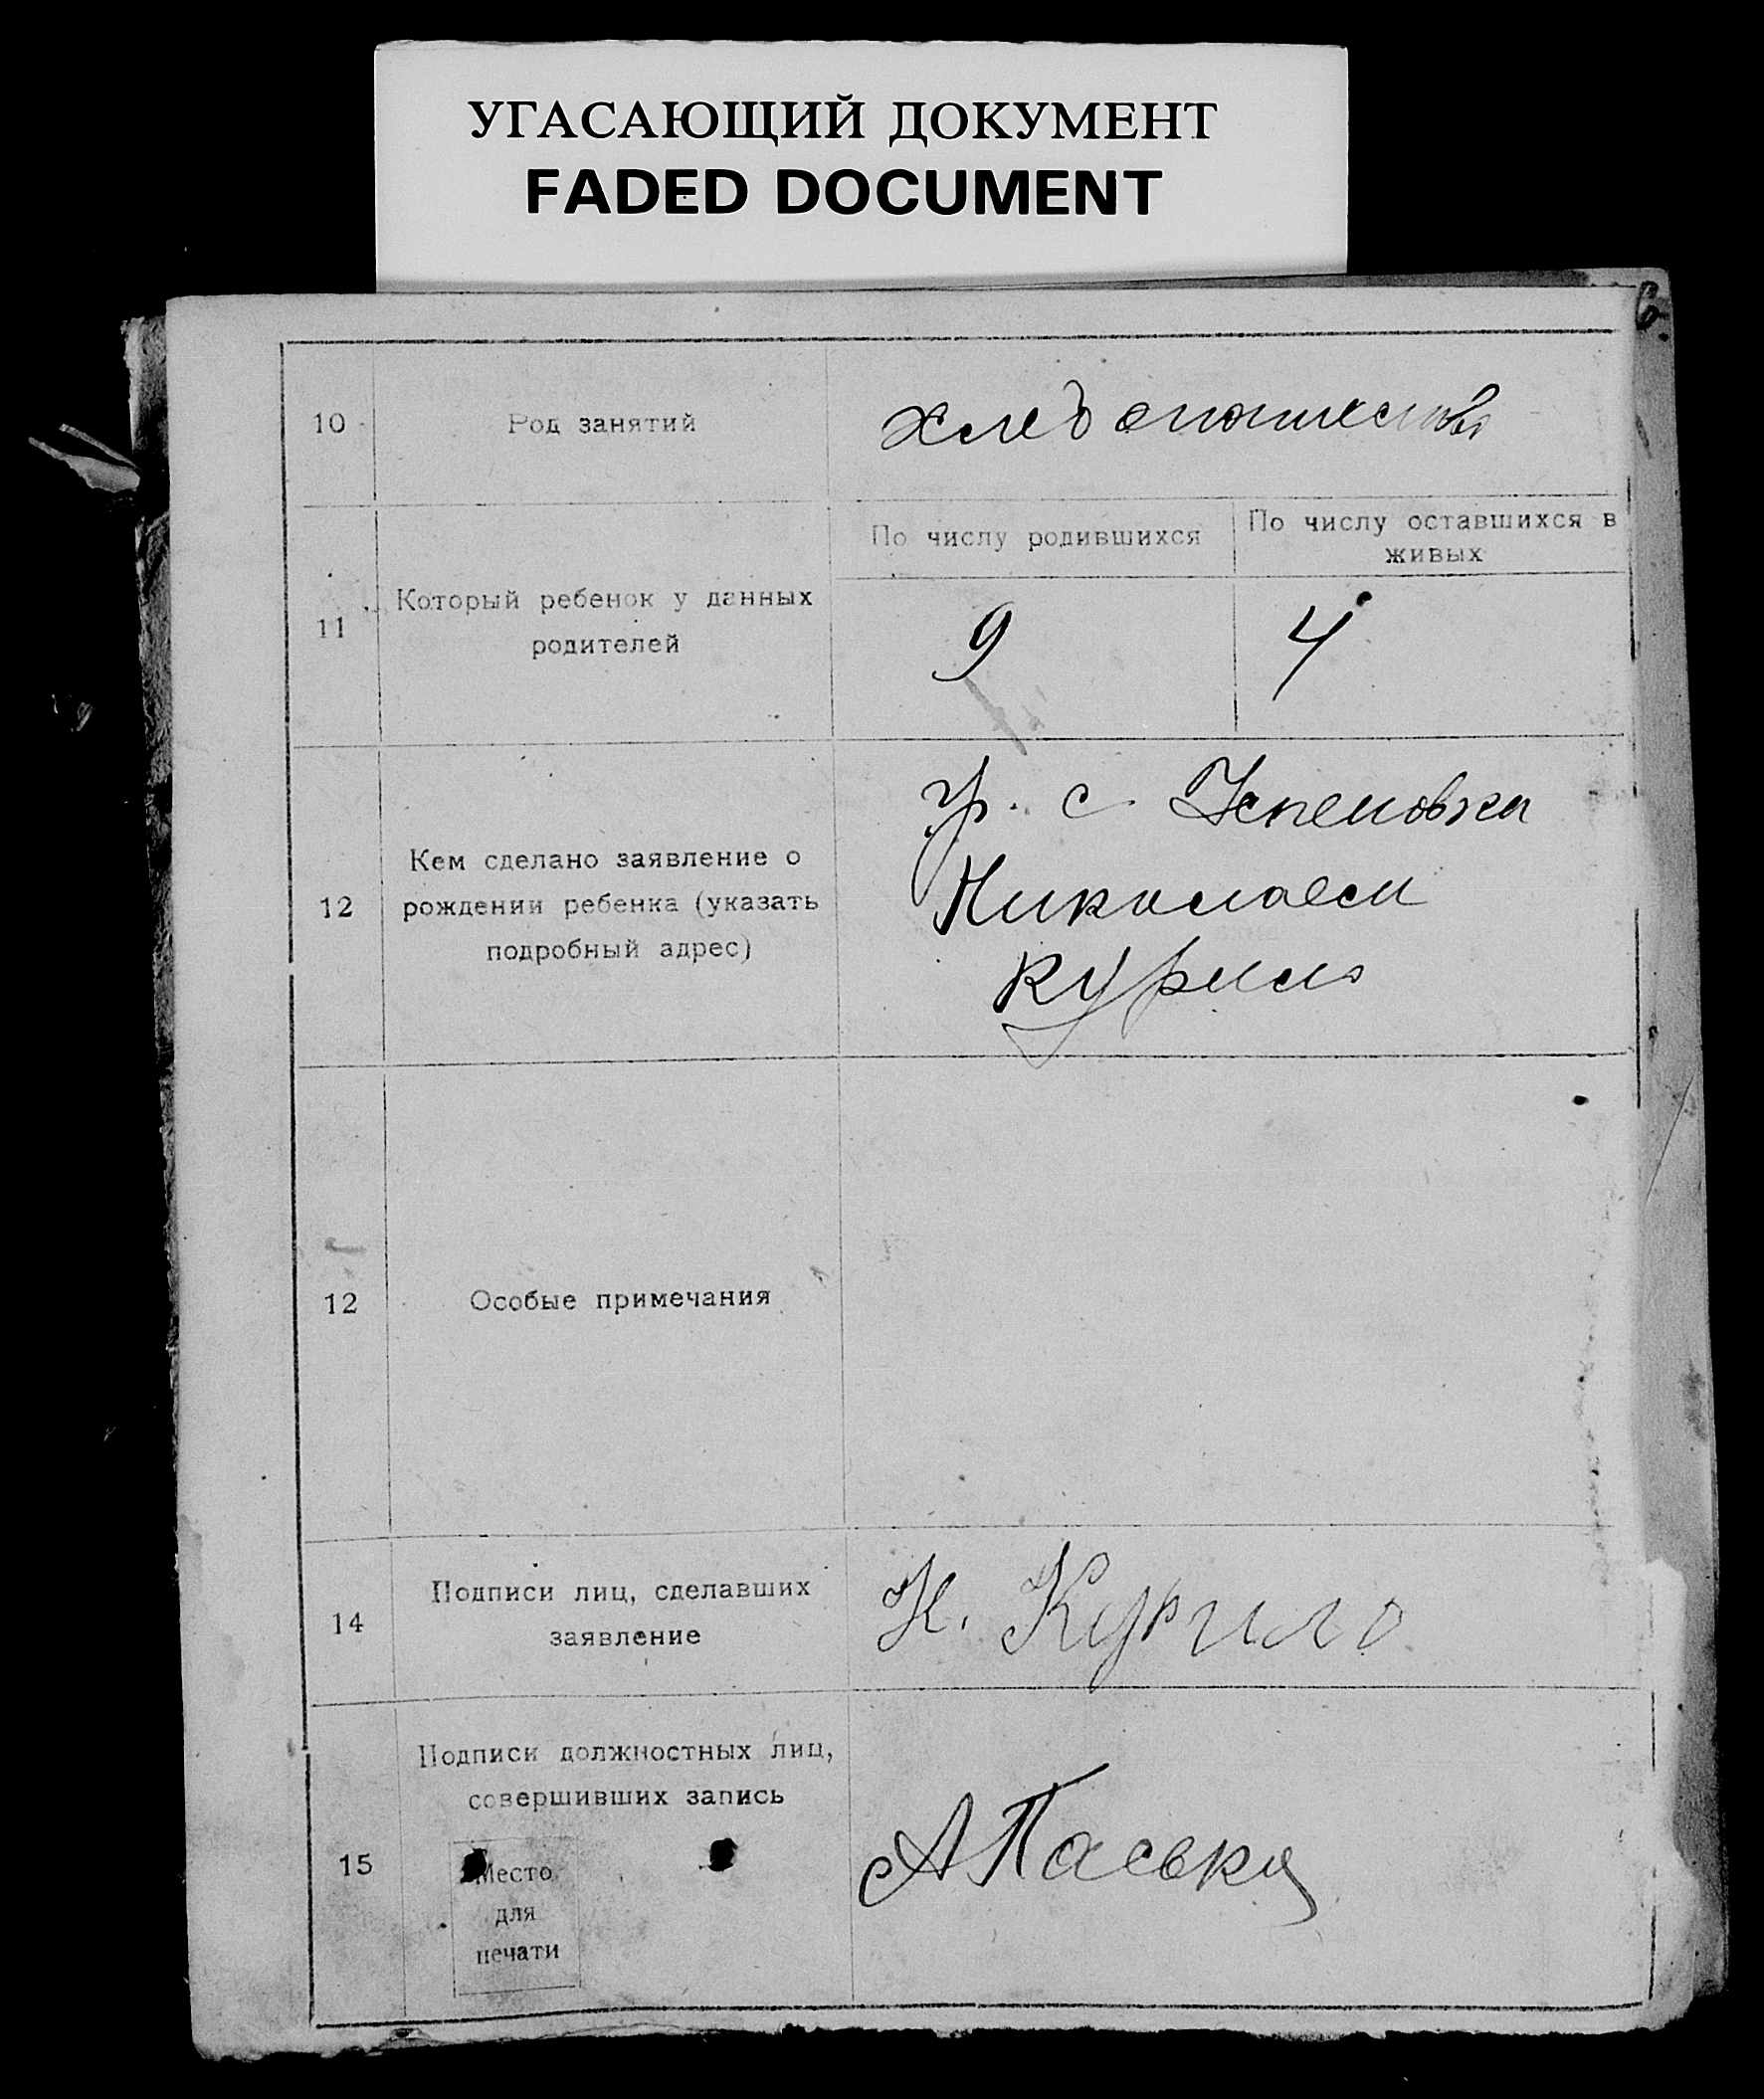 УГАСАЮЩИЙ ДОКУМЕНТ
FADED DOCUMENT
6
10 Род занятий хлебопашество
11 Который ребенок у данных
родителей
По числу родившихся
По числу оставшихся в
живых
9 4
12 Кем сделано заявление о
рождении ребенка (указать
подробный адрес)
гр. с. Успеновка
Николаем
Курило
12 Особые примечания
14 Подписи лиц, сделавших
заявление
Н. Курило
15 Подписи должностных лиц,
совершивших запись
Место
для
печати
А Паська